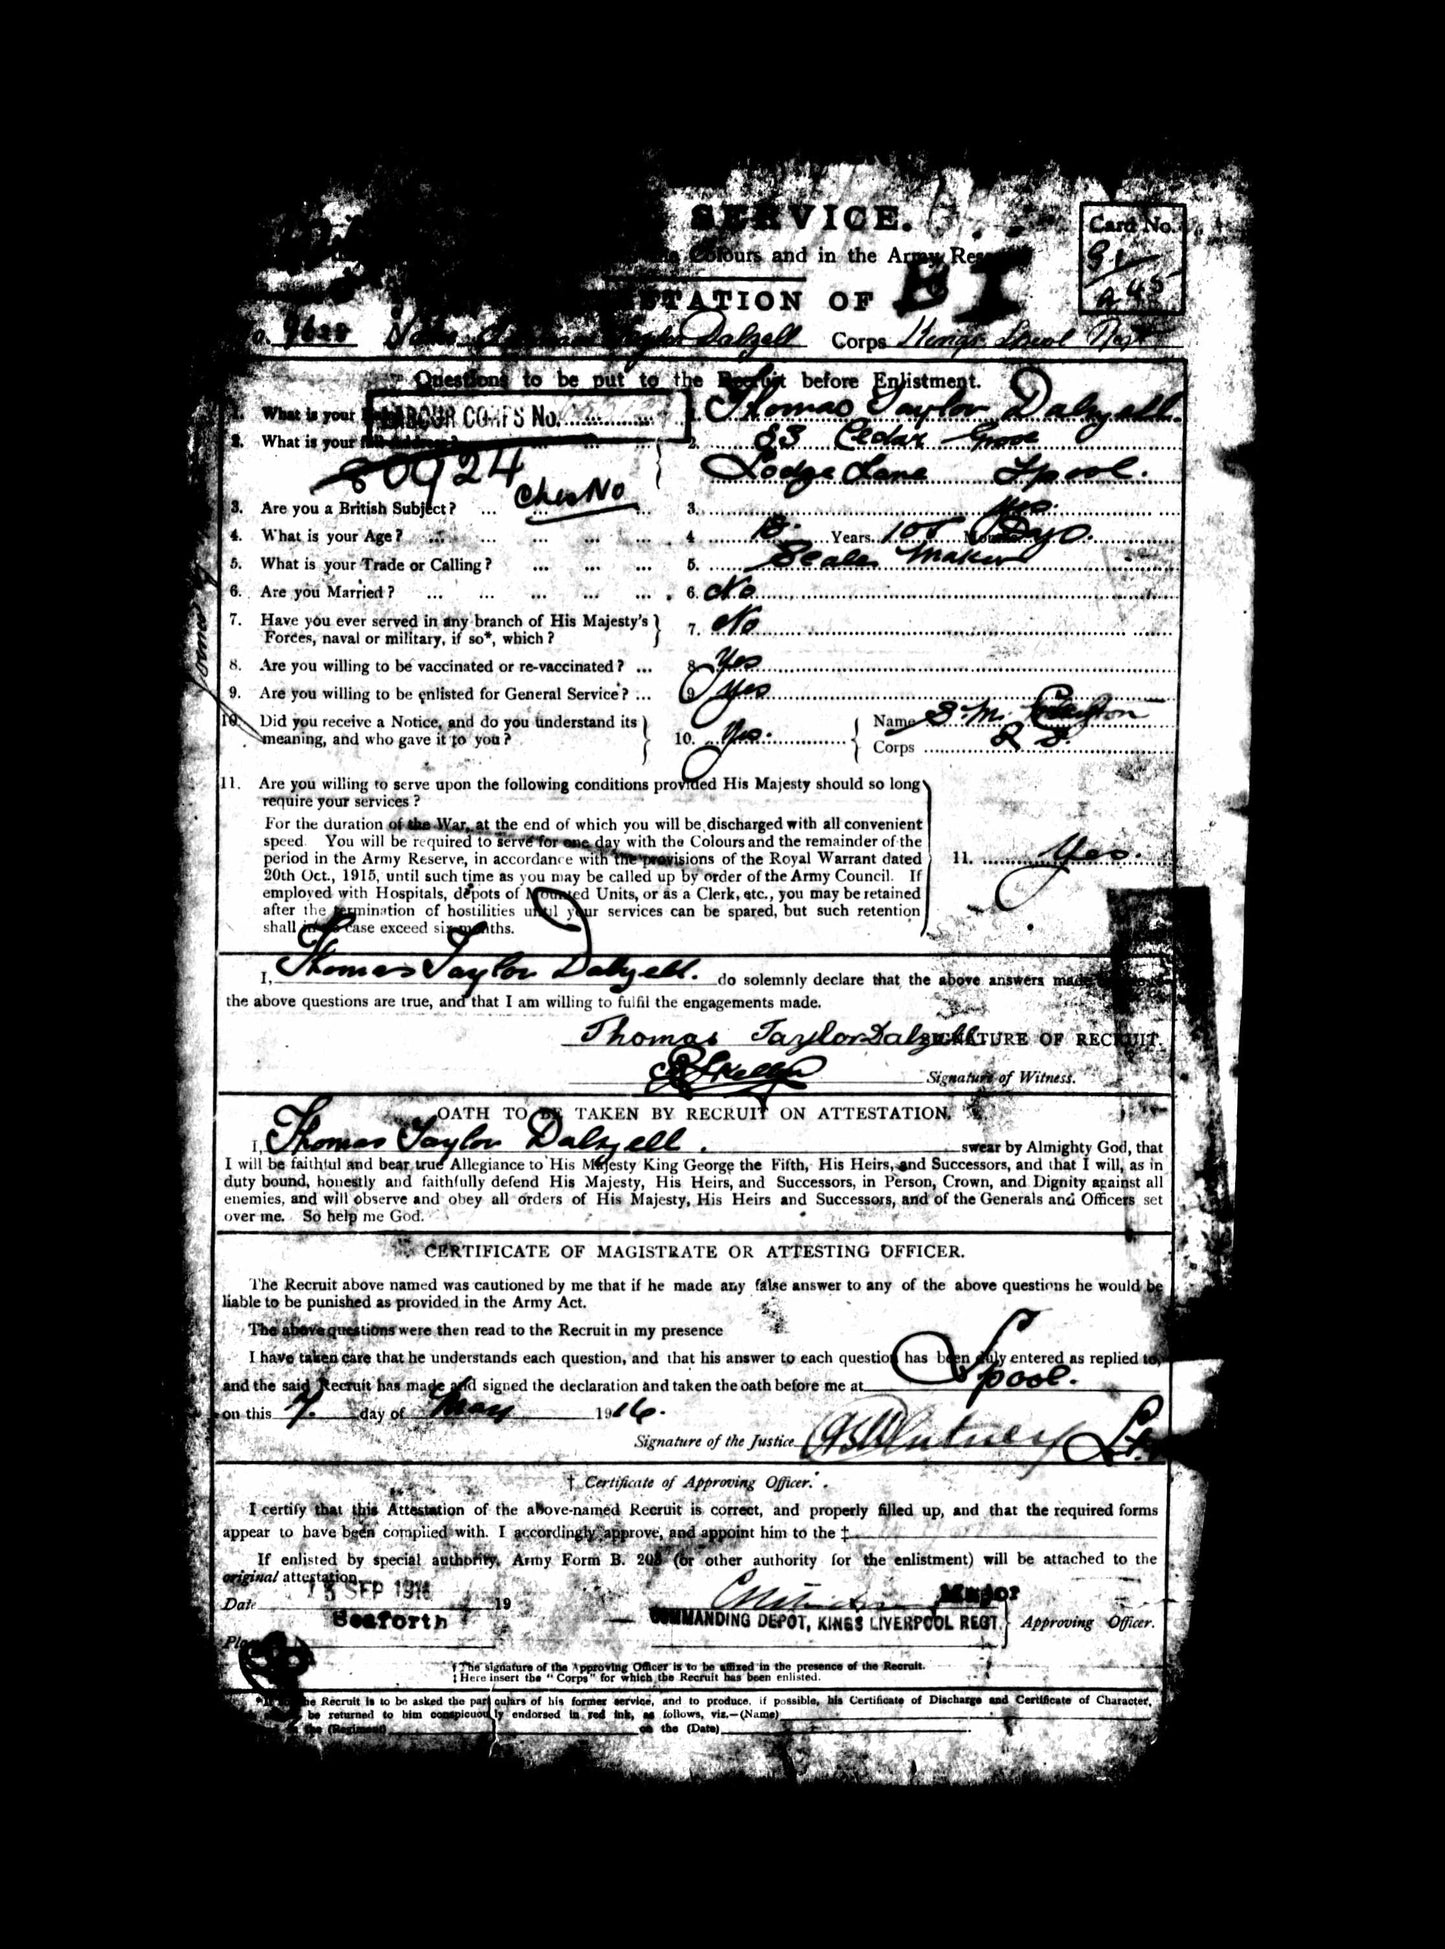 SERVICE.
Colours and in the Army Res
Card No.
TATION OF
Name Taylor Dalzell Corps Kings Lpool Regt
Questions to be put to the Recruit before Enlistment.
1. What is your 1. Thomas Taylor Dalzell.
LABOUR CORPS No.
2. What is your full Address? 2. 83 Cedar Grove
80924 Lodge Lane Lpool.
3. Are you a British Subject? ... 3. Yes.
4. What is your Age? ... ... ... ... 4 18 Years 105 Months Days.
5. What is your Trade or Calling? ... ... ... 5. Scale Maker
6. Are you Married? ... ... ... ... ... 6. No
7. Have you ever served in any branch of His Majesty's
Forces, naval or military, if so*, which? 7. No
8. Are you willing to be vaccinated or re-vaccinated? ... 8. Yes
9. Are you willing to be enlisted for General Service? ... 9 Yes
10. Did you receive a Notice, and do you understand its
meaning, and who gave it to you? 10. Yes. Name
Corps
11. Are you willing to serve upon the following conditions provided His Majesty should so long
require your services?
For the duration of the War, at the end of which you will be discharged with all convenient
speed. You will be required to serve for one day with the Colours and the remainder of the
period in the Army Reserve, in accordance with the provisions of the Royal Warrant dated
20th Oct., 1915, until such time as you may be called up by order of the Army Council. If
employed with Hospitals, depots of Mounted Units, or as a Clerk, etc., you may be retained
after the termination of hostilities until your services can be spared, but such retention
shall in no case exceed six months.
11. Yes.
I, Thomas Taylor Dalzell. do solemnly declare that the above answers made
the above questions are true, and that I am willing to fulfil the engagements made.
Thomas Taylor Dalzell SIGNATURE OF RECRUIT.
Signature of Witness.
OATH TO BE TAKEN BY RECRUIT ON ATTESTATION.
I, Thomas Taylor Dalzell. swear by Almighty God, that
I will be faithful and bear true Allegiance to His Majesty King George the Fifth, His Heirs, and Successors, and that I will, as in
duty bound, honestly and faithfully defend His Majesty, His Heirs, and Successors, in Person, Crown, and Dignity against all
enemies, and will observe and obey all orders of His Majesty, His Heirs and Successors, and of the Generals and Officers set
over me. So help me God.
CERTIFICATE OF MAGISTRATE OR ATTESTING OFFICER.
The Recruit above named was cautioned by me that if he made any false answer to any of the above questions he would be
liable to be punished as provided in the Army Act.
The above questions were then read to the Recruit in my presence
I have taken care that he understands each question, and that his answer to each question has been duly entered as replied to,
and the said Recruit has made and signed the declaration and taken the oath before me at Lpool.
on this 7. day of May 1916.
Signature of the Justice Lt.
† Certificate of Approving Officer.
I certify that this Attestation of the above-named Recruit is correct, and properly filled up, and that the required forms
appear to have been complied with. I accordingly approve, and appoint him to the ‡
If enlisted by special authority, Army Form B. 203 (or other authority for the enlistment) will be attached to the
original attestation.
Date 19 Major
Seaforth COMMANDING DEPÔT, KINGS LIVERPOOL REGT. Approving Officer.
† The signature of the Approving Officer is to be affixed in the presence of the Recruit.
‡ Here insert the "Corps" for which the Recruit has been enlisted.
the Recruit is to be asked the particulars of his former service, and to produce, if possible, his Certificate of Discharge and Certificate of Character,
be returned to him conspicuously endorsed in red ink, as follows, viz.—(Name)
the (Regiment) on the (Date)